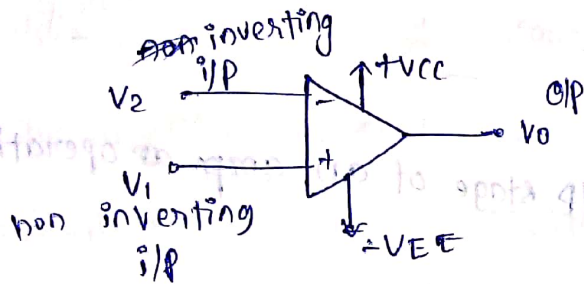 inverting
i/p
+VCC
O/P
V2
-
V0
+
V1
non inverting
i/p
-VEE